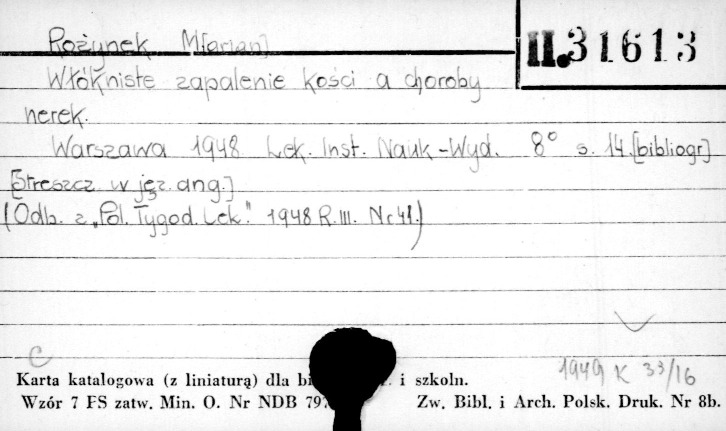 Rożynek M[arian]
II.31613
Włókniste zapalenie kości a choroby
nerek.
Warszawa 1948 Lek. Inst. Nauk-Wyd. 8° s. 14.[bibliogr]
[Streszcz. w jęz. ang.]
(Odb. z „Pol. Tygod. Lek." 1948 R. III. Nr 41.)
C
1949 K 33/16
Karta katalogowa (z liniaturą) dla i szkoln.
Wzór 7 FS zatw. Min. O. Nr NDB Zw. Bibl. i Arch. Polsk. Druk. Nr 8b.